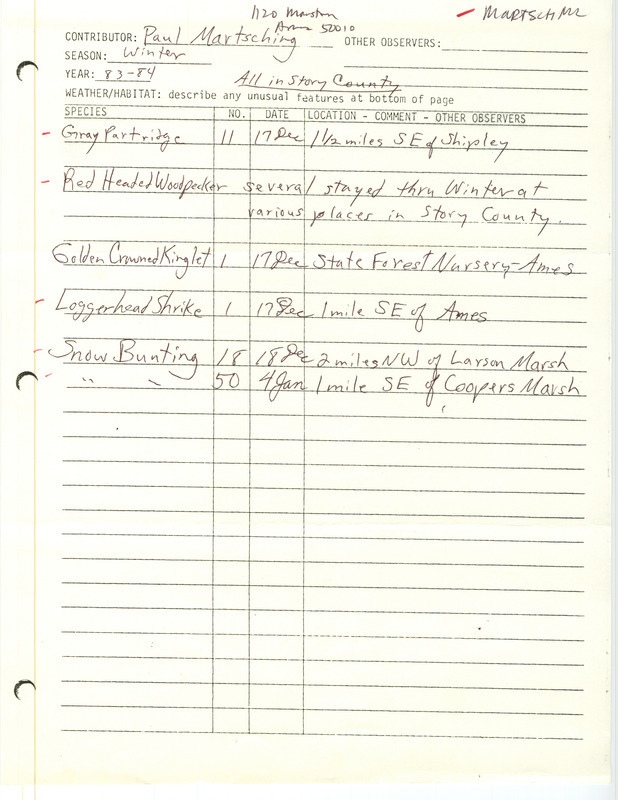 1120 Marston
Ames 50010
MARTSCHING
CONTRIBUTOR: Paul Martsching OTHER OBSERVERS:
SEASON: Winter
YEAR: 83-84 All in Story County
WEATHER/HABITAT: describe any unusual features at bottom of page
SPECIES NO. DATE LOCATION - COMMENT - OTHER OBSERVERS
- Gray Partridge 11 17 Dec 1 1/2 miles SE of Shipley
- Red Headed Woodpecker several stayed thru Winter at
various places in Story County.
Golden Crowned Kinglet 1 17 Dec State Forest Nursery-Ames
- Loggerhead Shrike 1 17 Dec 1 mile SE of Ames
- Snow Bunting 18 18 Dec 2 miles NW of Larson Marsh
- " " 50 4 Jan 1 mile SE of Coopers Marsh